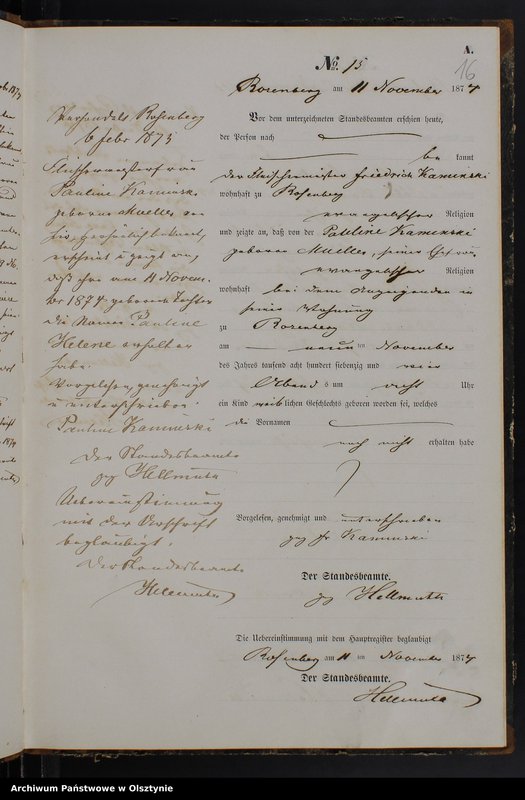 A.
16
No. 15
Rosenberg am 11 November 1874
Vor dem unterzeichneten Standesbeamten erschien heute,
der Person nach
be kannt
der Fleischermeister Friedrich Kaminski
wohnhaft zu Rosenberg
evangelischer Religion
und zeigte an, daß von der Pauline Kaminski
geborne Mueller, seiner Ehefrau
evangelischer Religion
wohnhaft bei dem Anzeigenden in
seiner Wohnung
zu Rosenberg
am neun ten November
des Jahres tausend acht hundert siebenzig und vier
Abend s um acht Uhr
ein Kind weib lichen Geschlechts geboren worden sei, welches
die Vornamen
noch nicht erhalten habe
Vorgelesen, genehmigt und unterschrieben
gez Fr Kaminski
Der Standesbeamte.
gez Hellmuth
Die Uebereinstimmung mit dem Hauptregister beglaubigt
Rosenberg am 11 ten November 1874
Der Standesbeamte.
Hellmuth
Rosenberg
6 Febr 1875
Pauline Kaminski
geborne Mueller von
hier, persönlich bekannt,
erscheint u zeigt an,
daß ihre am Novem-
ber 1874 geborene Tochter
die Namen Pauline
Helene erhalten
habe.
Vorgelesen, genehmigt
u unterschrieben.
Pauline Kaminski
Der Standesbeamte
gez Hellmuth
Uebereinstimmung
mit der Urschrift
beglaubigt.
Der Standesbeamte
Hellmuth
Archiwum Państwowe w Olsztynie